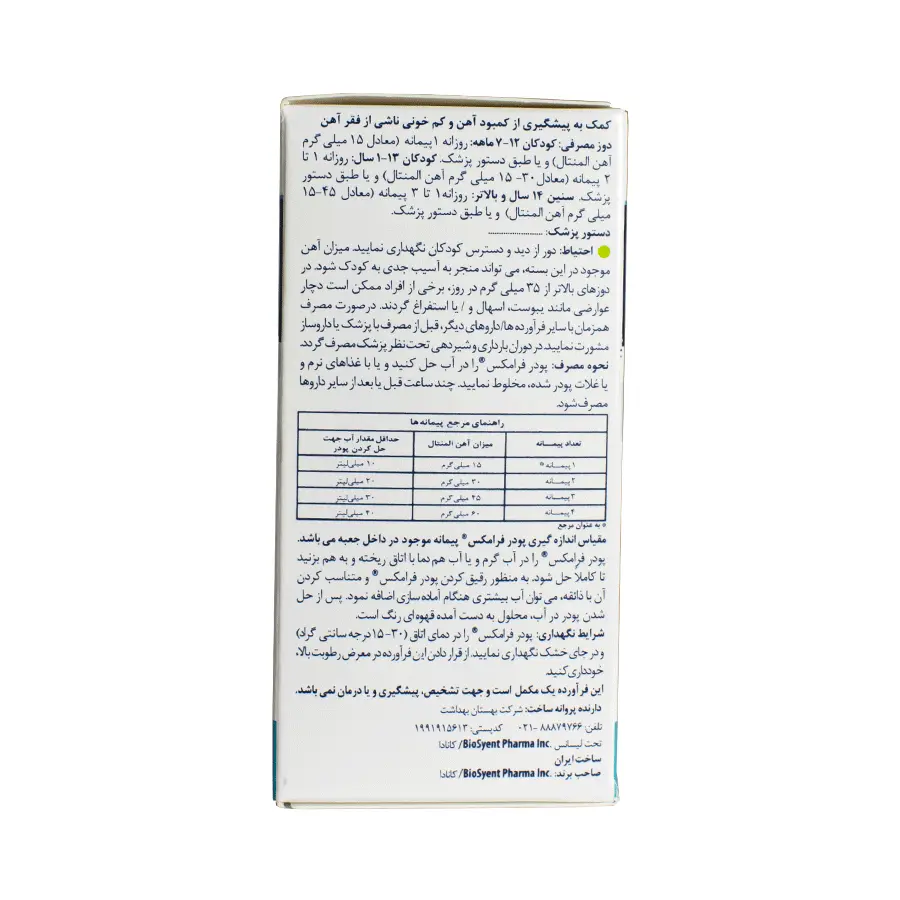 کمک به پیشگیری از کمبود آهن و کم خونی ناشی از فقر آهن
دوز مصرفی: کودکان ۱۲-۷ ماهه: روزانه ۱ پیمانه (معادل ۱۵ میلی گرم
آهن المنتال) و یا طبق دستور پزشک. کودکان ۱۳-۱ سال: روزانه ۱ تا
۲ پیمانه (معادل ۳۰- ۱۵ میلی گرم آهن المنتال) و یا طبق دستور
پزشک. سنین ۱۴ سال و بالاتر: روزانه ۱ تا ۳ پیمانه (معادل ۴۵-۱۵
میلی گرم آهن المنتال) و یا طبق دستور پزشک.
دستور پزشک: ......................
احتیاط: دور از دید و دسترس کودکان نگهداری نمایید. میزان آهن
موجود در این بسته، می تواند منجر به آسیب جدی به کودک شود. در
دوزهای بالاتر از ۳۵ میلی گرم در روز، برخی از افراد ممکن است دچار
عوارضی مانند یبوست، اسهال و / یا استفراغ گردند. درصورت مصرف
همزمان با سایر فرآورده ها/داروهای دیگر، قبل از مصرف با پزشک یا داروساز
مشورت نمایید. در دوران بارداری و شیردهی تحت نظر پزشک مصرف گردد.
نحوه مصرف: پودر فرامکس® را در آب حل کنید و یا با غذاهای نرم و
یا غلات پودر شده، مخلوط نمایید. چند ساعت قبل یا بعد از سایر داروها
مصرف شود.
راهنمای مرجع پیمانه ها
تعداد پیمانه میزان آهن المنتال حداقل مقدار آب جهت
حل کردن پودر
۱ پیمانه* ۱۵ میلی گرم ۱۰ میلی لیتر
۲ پیمانه ۳۰ میلی گرم ۲۰ میلی لیتر
۳ پیمانه ۴۵ میلی گرم ۳۰ میلی لیتر
۴ پیمانه ۶۰ میلی گرم ۴۰ میلی لیتر
* به عنوان مرجع
مقیاس اندازه گیری پودر فرامکس® پیمانه موجود در داخل جعبه می باشد.
پودر فرامکس® را در آب گرم و یا آب هم دما با اتاق ریخته و به هم بزنید
تا کاملاً حل شود. به منظور رقیق کردن پودر فرامکس® و متناسب کردن
آن با ذائقه، می توان آب بیشتری هنگام آماده سازی اضافه نمود. پس از حل
شدن پودر در آب، محلول به دست آمده قهوه ای رنگ است.
شرایط نگهداری: پودر فرامکس® را در دمای اتاق (۳۰-۱۵ درجه سانتی گراد)
و در جای خشک نگهداری نمایید. از قرار دادن این فرآورده در معرض رطوبت بالا،
خودداری کنید.
این فرآورده یک مکمل است و جهت تشخیص، پیشگیری و یا درمان نمی باشد.
دارنده پروانه ساخت: شرکت بهستان بهداشت
تلفن: ۸۸۸۷۹۷۶۶ -۰۲۱ کدپستی: ۱۹۹۱۹۱۵۶۱۳
تحت لیسانس .BioSyent Pharma Inc/ کانادا
ساخت ایران
صاحب برند: .BioSyent Pharma Inc/ کانادا